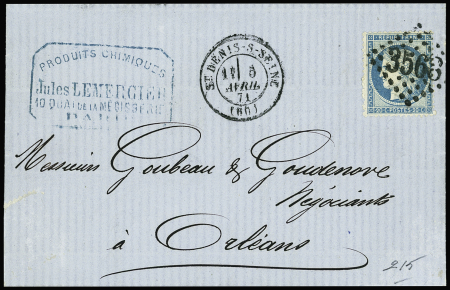 PRODUITS CHIMIQUES
Jules LEMERCIER
10 QUAI DE LA MÉGISSERIE
PARIS
ST DENIS-S-SEINE
5
AVRIL
71
(60)
3563
20 C. POSTES 20 C.
Messieurs Goubeau & Goudenove
Négociants
à Orléans
215